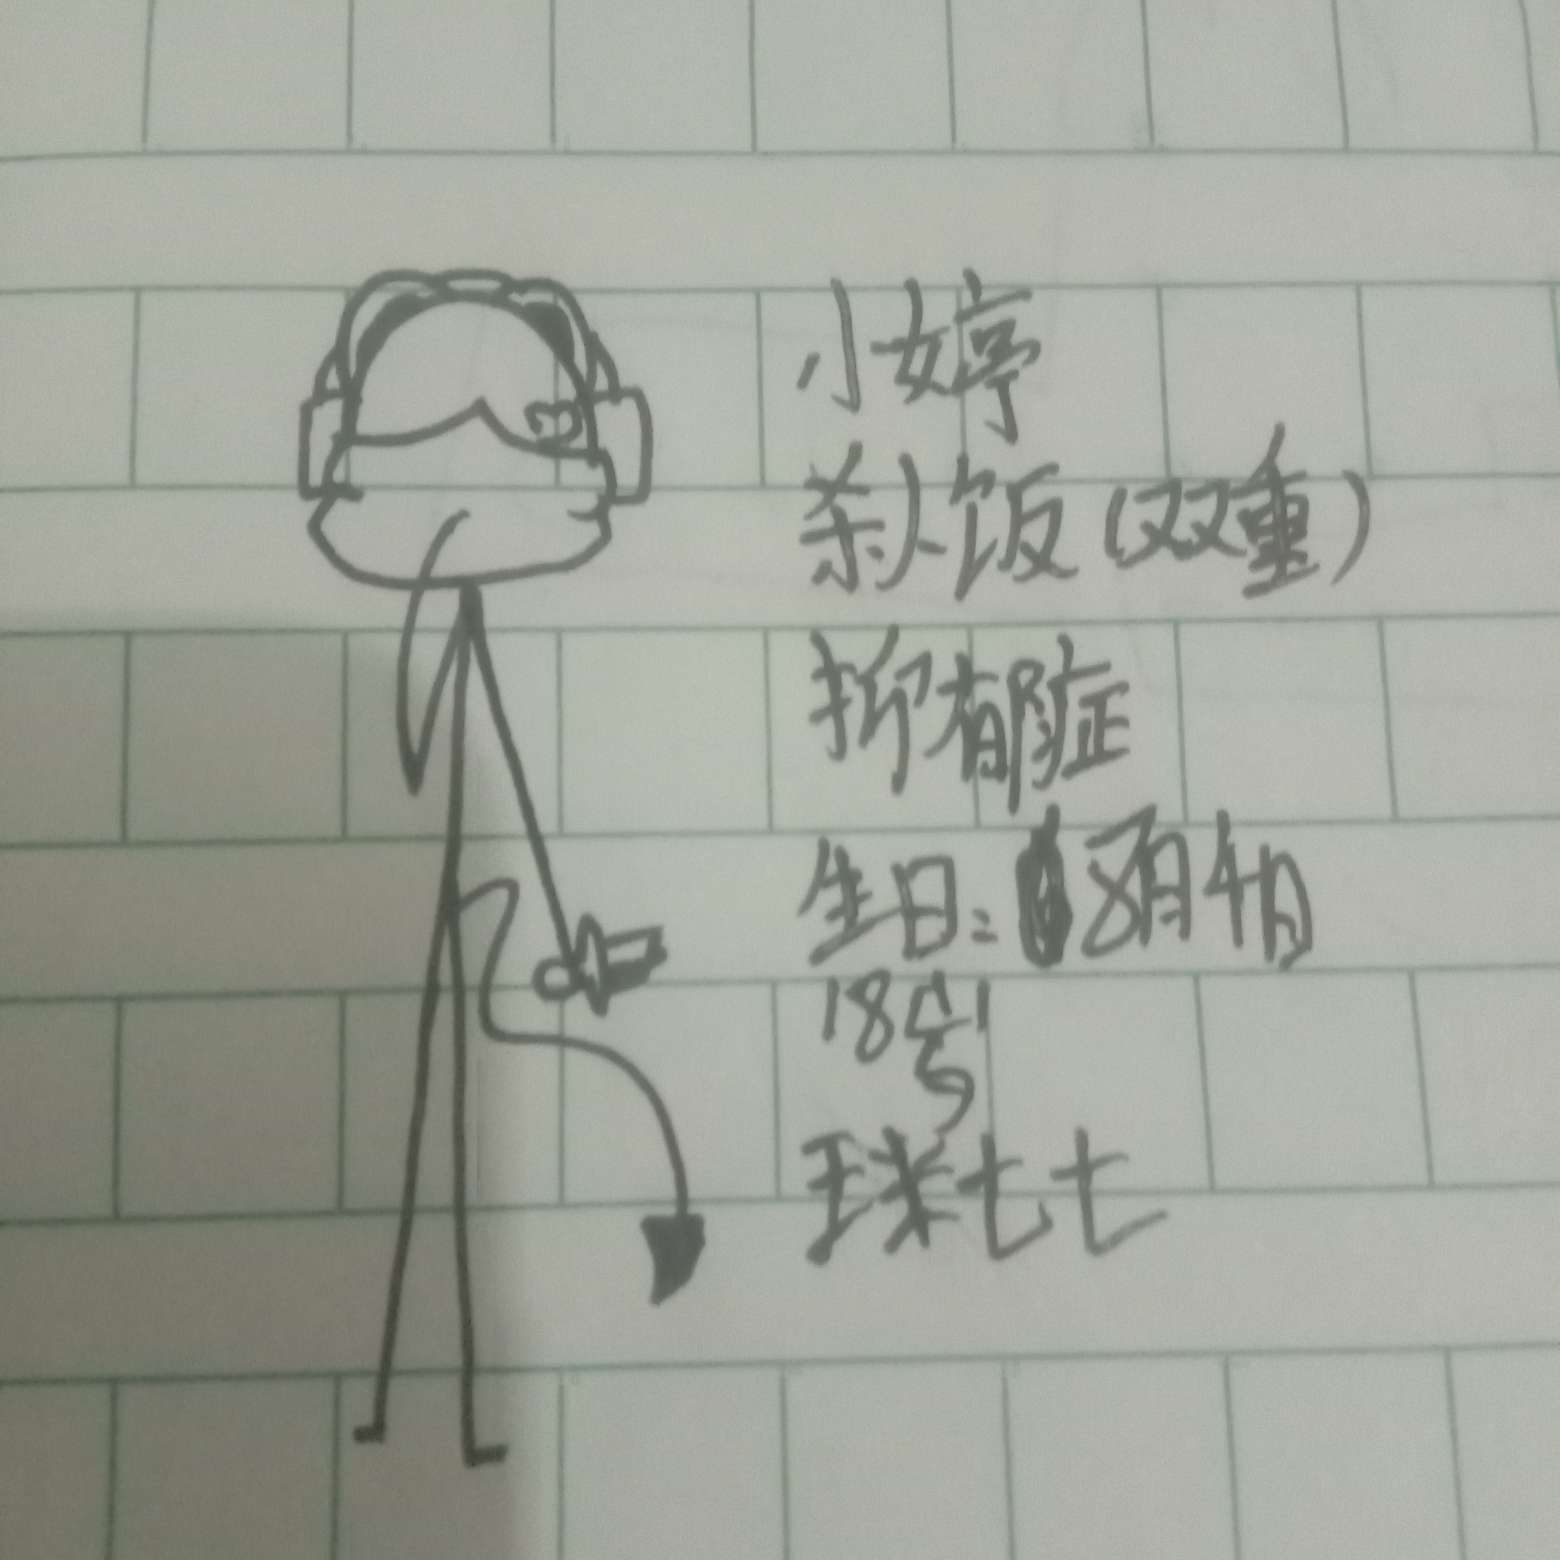 小婷
杀人饭(双重)
抑郁症
生日:8月4月
18号
球七七